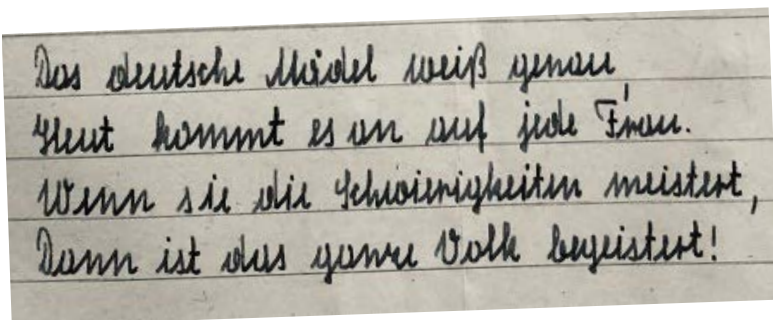 Das deutsche Mädel weiß genau,
Heut kommt es an auf jede Frau.
Wenn sie die Schwierigkeiten meistert,
Dann ist das ganze Volk begeistert!